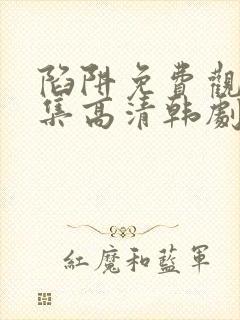 陷阱免費觀
集高清韩劇
紅魔和藍軍